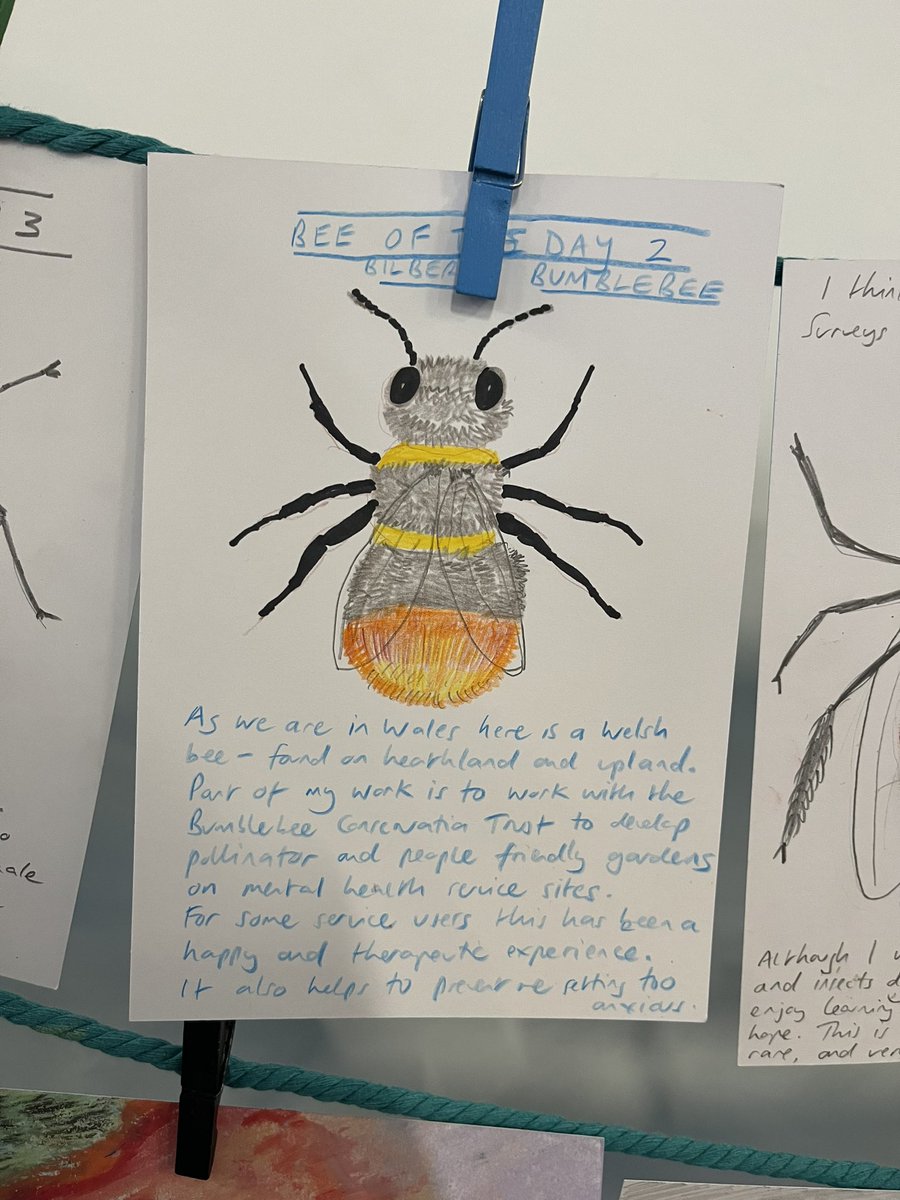 3
BEE OF DAY 2
BUMBLEBEE
As we are in Wales here is a Welsh
bee - found on heathland and upland.
Part of my work is to work with the
Bumblebee Conservation Trust to develop
pollinator and people friendly gardens
on mental health service sites.
For some service users this has been a
happy and therapeutic experience.
It also helps to prevent me getting too
anxious.
I thin
Surveys
Although I
and insects d
enjoy learning
hope. This is
rare, and ver
ale